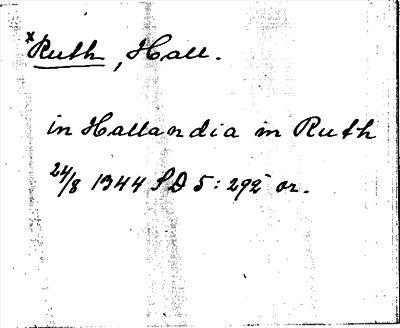 *Ruth, Hall.
in Hallandia in Ruth
24/8 1344 SD 5:292 or.